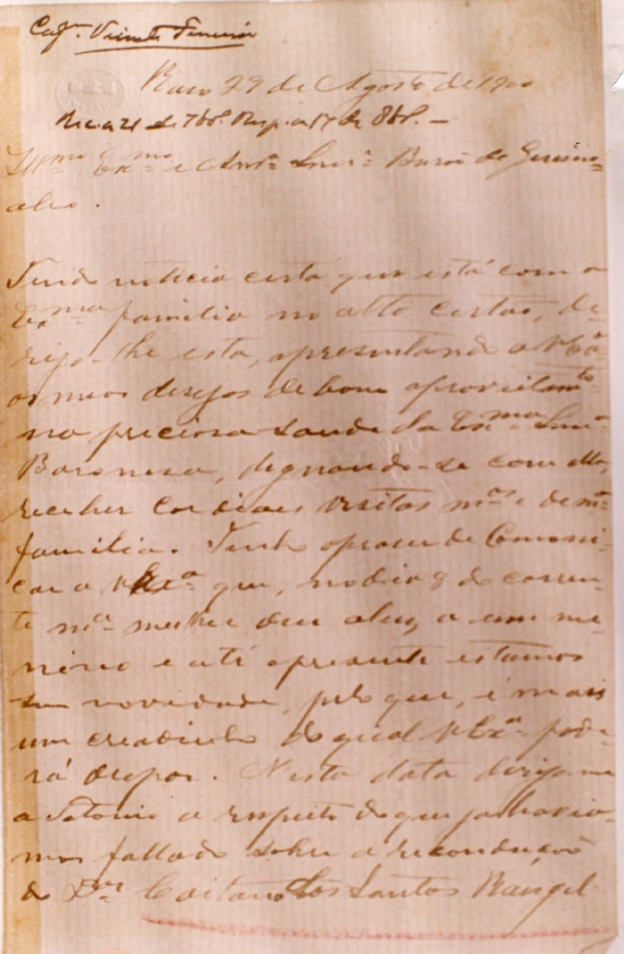 Cap.m Vicente Ferreira
Raso 29 de Agosto de 1900
Rec. a 21 de 7br. Resp. a 17 de 8br. —
Illmo Exmo e Snr. Barão de Geremo-
abo.
Tendo noticia certa que está com a
Exma familia no alto certão, de-
rijo-lhe esta, apresentando a VExª
os meos desejos de bom aproveitamto
na preciosa saude da Exma Snrª
Baronesa, dignando-se com ella,
receber cordiaes visitas mas e de mª
familia. Tenho o praser de Comoni-
car a VExª que, no dia 8 do corren-
te mª mulher deu a luz a um me-
nino e até apresente estamos
sem novidade, pelo que, é mais
um creadinho do qual VExª pode-
rá dispor. Nesta data dirijo-me
a Antonio a respeito do que ja havia-
mos fallado sobre a reconducção
do Dor Caitano dos Santos Rangel